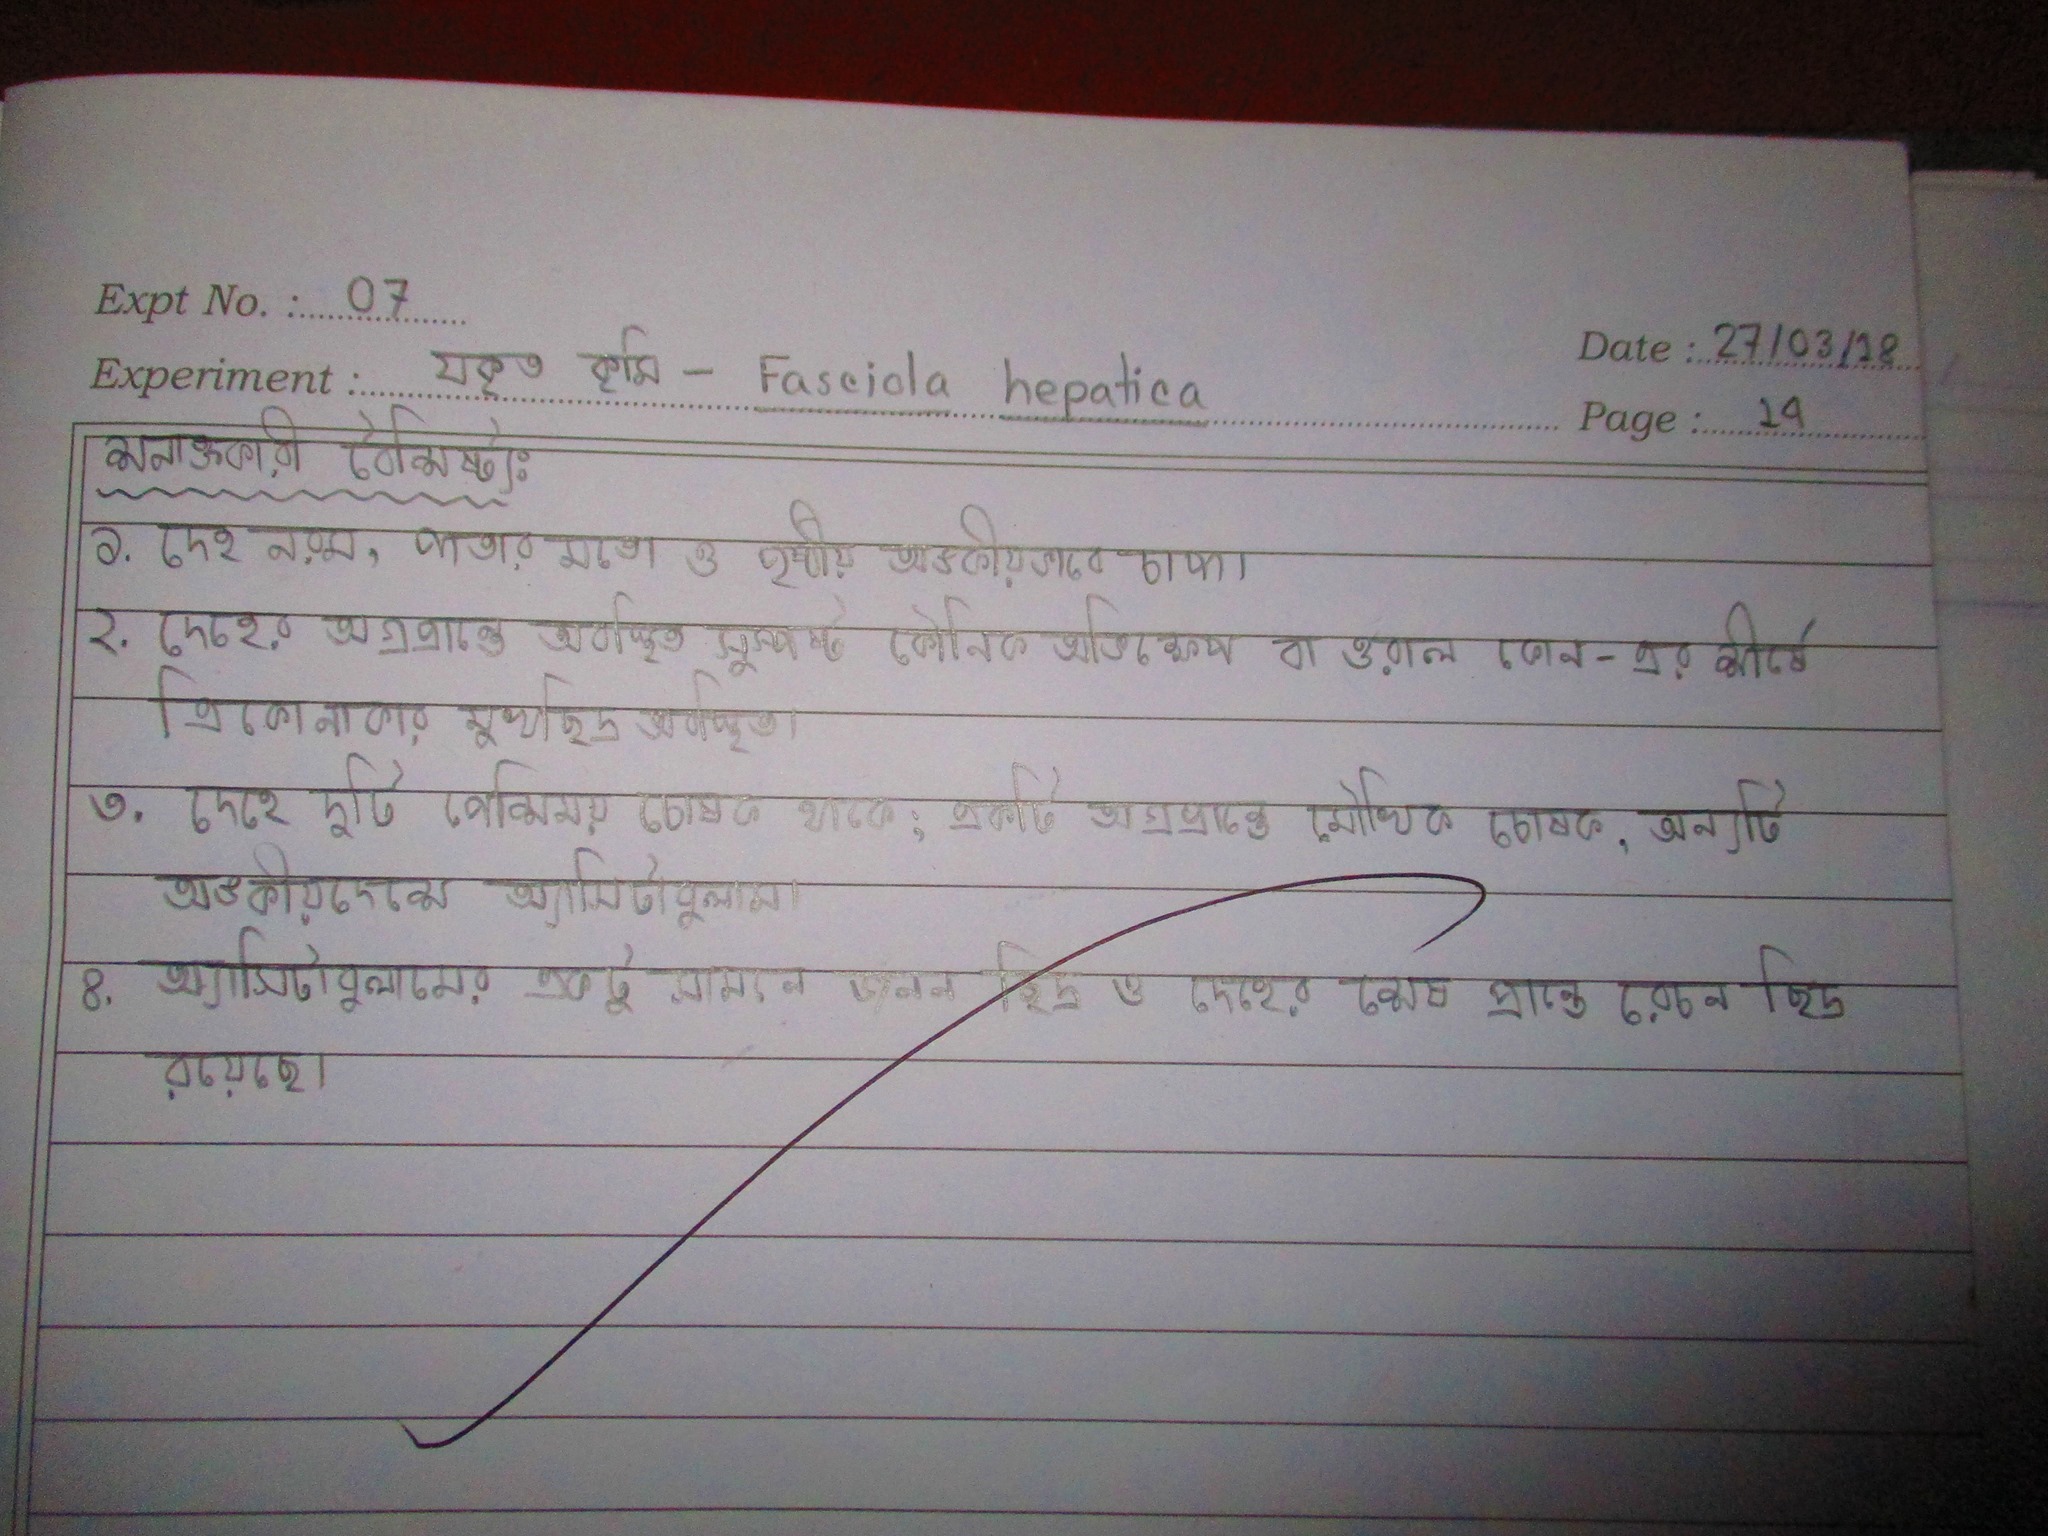 Expt No. : 07
Date : 27/03/18
Experiment : যকৃত কৃমি - Fasciola hepatica
Page : 19
শনাক্তকারী বৈশিষ্ট্যঃ
১. দেহ নরম, পাতার মতো ও পৃষ্ঠীয় অঙ্কীয়ভাবে চাপা।
২. দেহের অগ্রপ্রান্তে অবস্থিত সুস্পষ্ট কৌনিক অভিক্ষেপ বা ওরাল কোন-এর শীর্ষে
ত্রিকোনাকার মুখছিদ্র অবস্থিত।
৩. দেহে দুটি পেশিময় চোষক থাকে; একটি অগ্রপ্রান্তে মৌখিক চোষক, অন্যটি
অঙ্কীয়দেশে অ্যাসিটাবুলাম।
৪. অ্যাসিটাবুলামের একটু সামনে জনন ছিদ্র ও দেহের শেষ প্রান্তে রেচন ছিদ্র
রয়েছে।